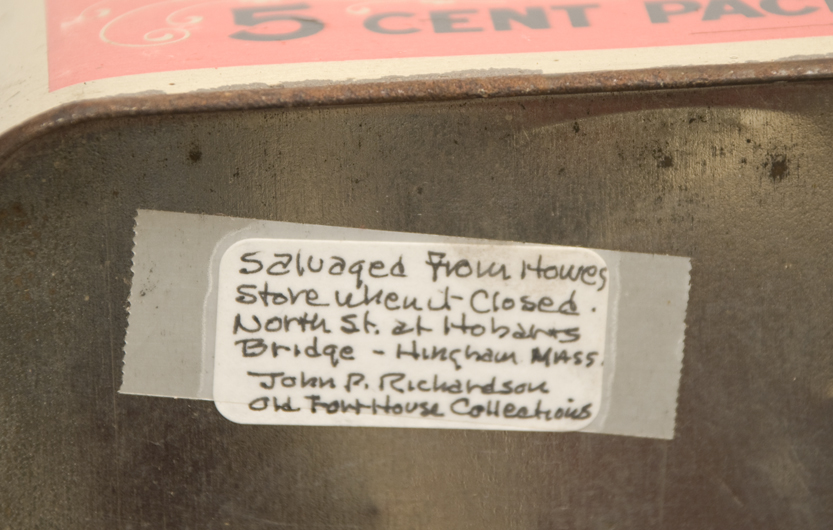 5 CENT PAC
Salvaged From Howes
Store when it Closed.
North St. at Hobarts
Bridge - Hingham Mass.
John P. Richardson
Old Fort House Collections